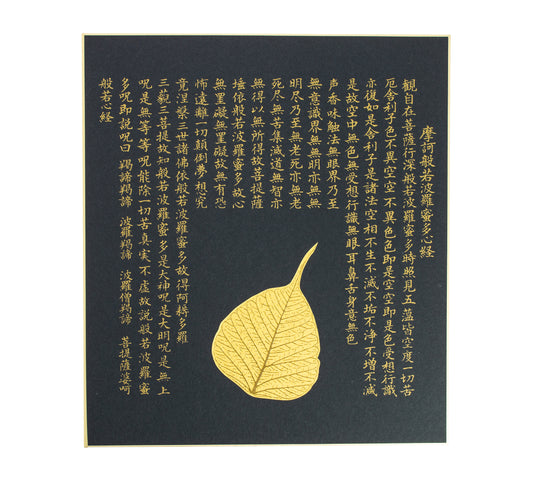 摩訶般若波羅蜜多心経
観自在菩薩行深般若波羅蜜多時照見五蘊皆空度一切苦
厄舎利子色不異空空不異色色即是空空即是色受想行識
亦復如是舎利子是諸法空相不生不滅不垢不浄不増不減
是故空中無色無受想行識無眼耳鼻舌身意無色
声香味触法無眼界乃至
無意識界無無明亦無無
明尽乃至無老死亦無老
死尽無苦集滅道無智亦
無得以無所得故菩提薩
埵依般若波羅蜜多故心
無罣礙無罣礙故無有恐
怖遠離一切顛倒夢想究
竟涅槃三世諸佛依般若波羅蜜多故得阿耨多羅
三藐三菩提故知般若波羅蜜多是大神呪是大明呪是無上
呪是無等等呪能除一切苦真実不虚故説般若波羅蜜
多呪即説呪曰 羯諦羯諦 波羅羯諦 波羅僧羯諦 菩提薩婆呵
般若心経